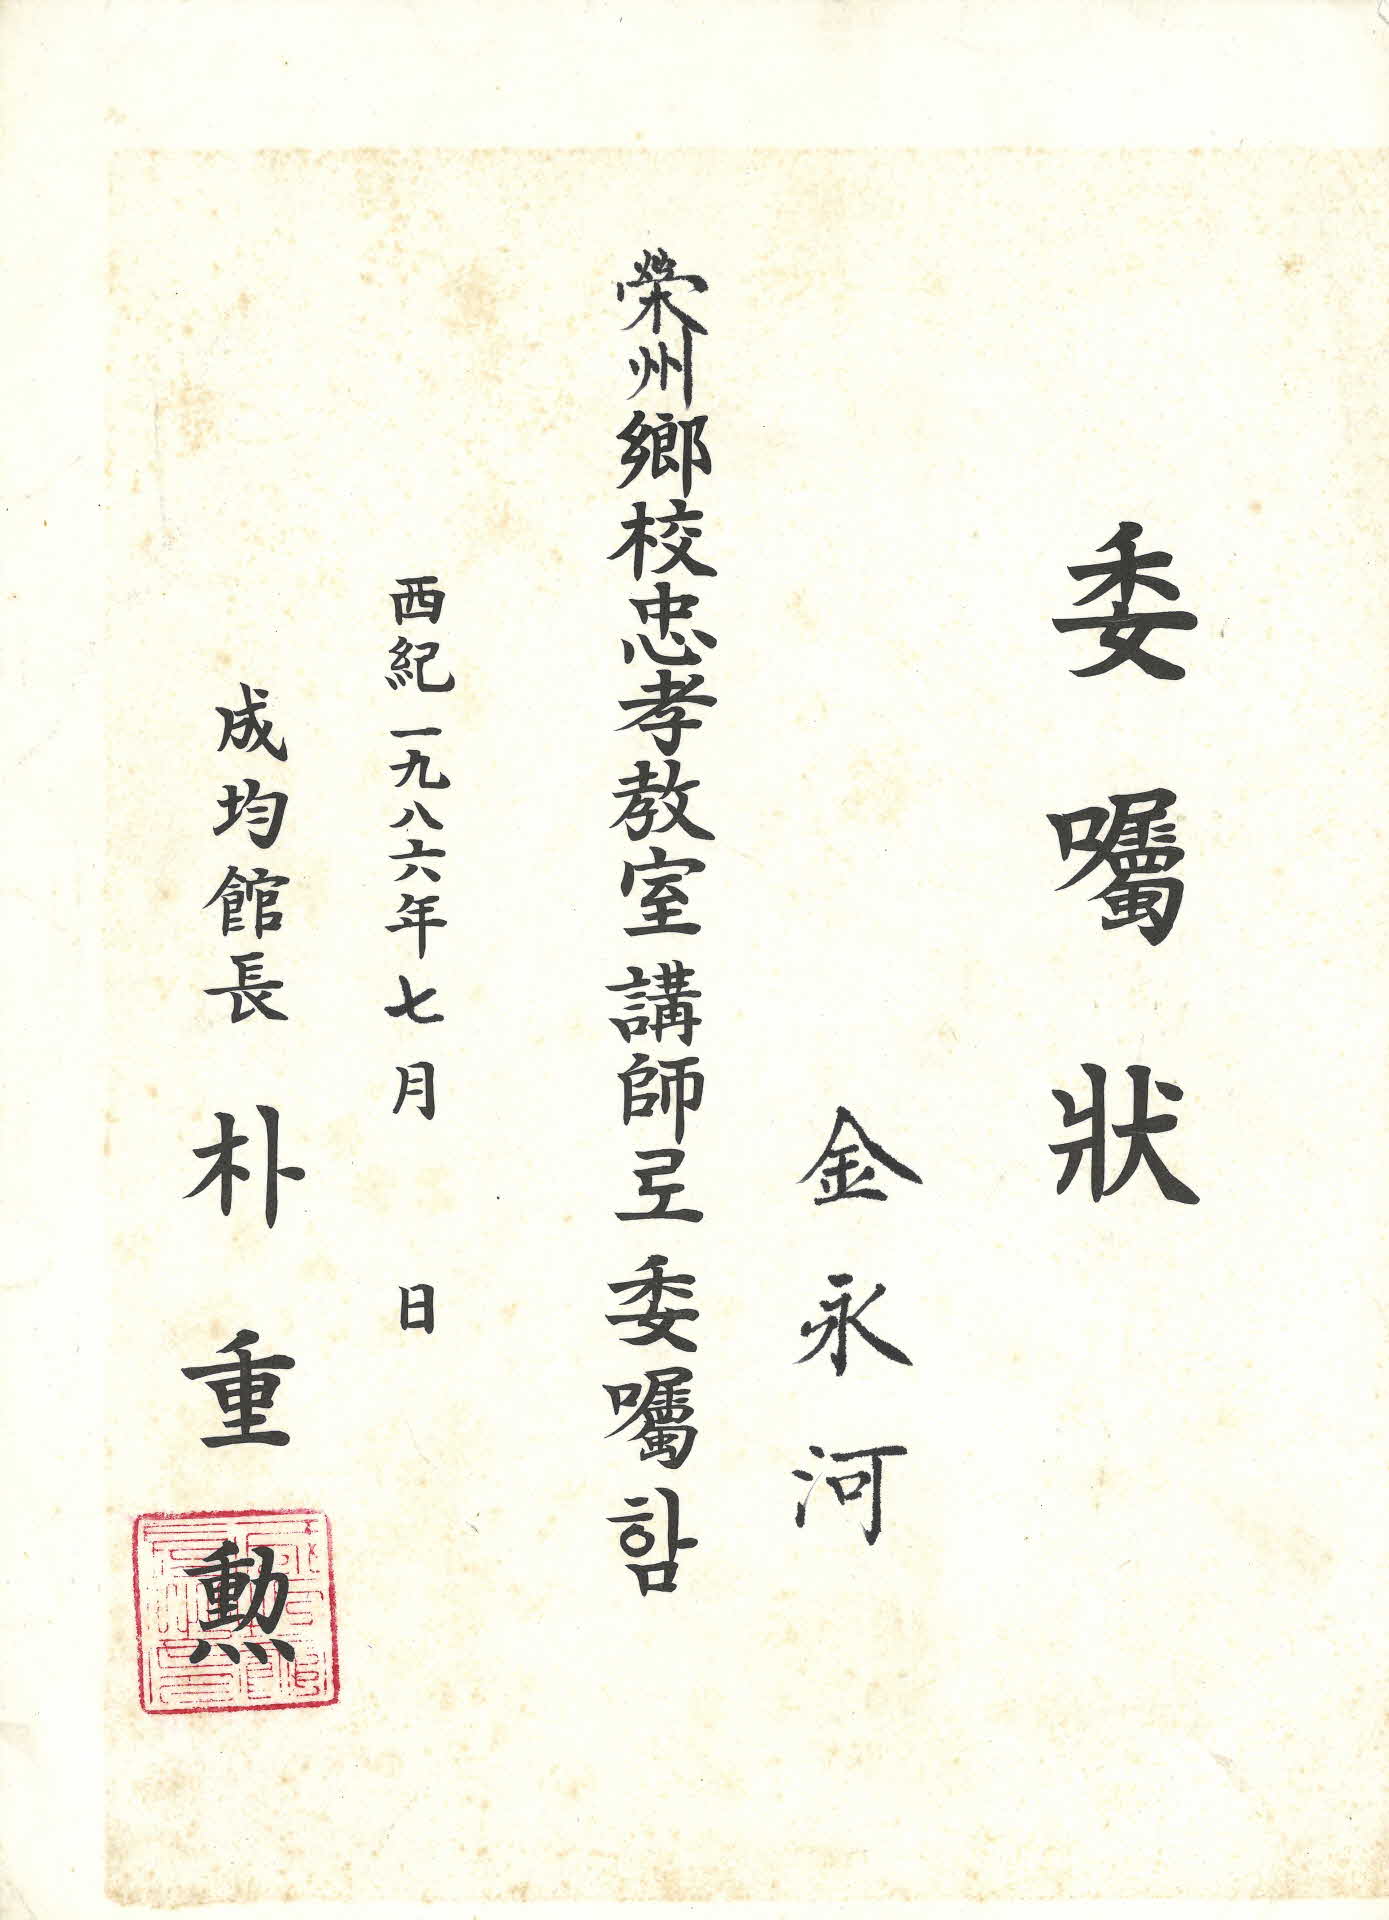 委囑狀
金永河
榮州鄕校忠孝教室講師로委囑함
西紀一九八六年七月 日
成均館長 朴重勳